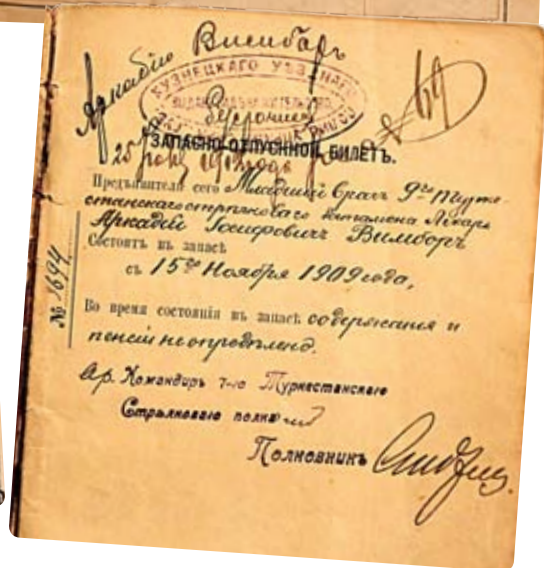 Аркадию Вимборъ
КУЗНЕЦКАГО УѢЗДНАГО
ЗАПАСНО-ОТПУСКНОЙ БИЛЕТЪ.
Предъявитель сего Младшій Врачъ 9го Турке-
станскаго стрѣлковаго баталіона Лекарь
Аркадій Іосифовичъ Вимборъ
Состоитъ въ запасѣ
съ 15го Ноября 1909 года,
№ 1694
Во время состоянія въ запасѣ содержанія и
пенсіи не опредѣлено.
Вр. Командиръ 7-го Туркестанскаго
Стрѣлковаго полка
Полковникъ